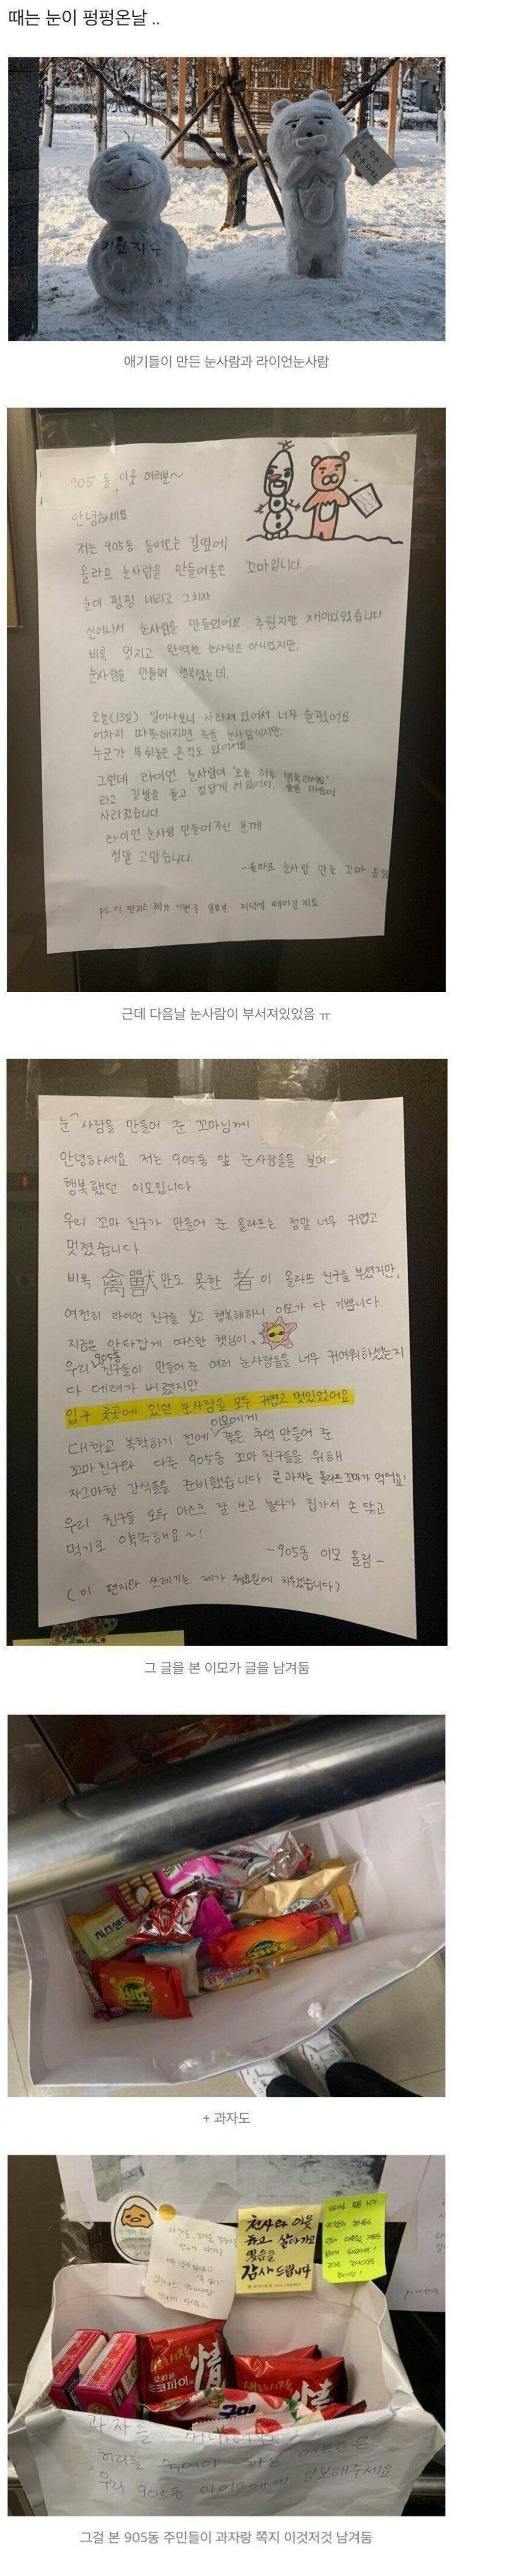 때는 눈이 펑펑온날 ..
애기들이 만든 눈사람과 라이언눈사람
905동 이웃 여러분~
안녕하세요
저는 905동 들어오는 길옆에
올라프 눈사람을 만들어놓은 꼬마입니다.
눈이 펑펑 내리고 그치자
신이나서 눈사람을 만들었어요 추웠지만 재미있었습니다
비록 멋지고 완벽한 눈사람은 아니었지만,
눈사람을 만들며 행복했는데,
오늘(13일) 일어나보니 사라져 있어서 너무 슬펐어요
어차피 따뜻해지면 녹을 눈사람이지만,
누군가 부숴놓은 흔적도 있어서요
그런데 라이언 눈사람이 '오늘 하루 행복하세요'
라고 깃발을 들고 서 있어서, 슬픈 마음이
사라졌습니다.
라이언 눈사람 만들어주신 분께
정말 고맙습니다.
-올라프 눈사람 만든 꼬마 올림
ps. 이 편지는 제가 이번주 일요일 저녁에 떼어갈게요
근데 다음날 눈사람이 부서져있었음 ㅠ
눈^사람을 만들어 준 꼬마님께
안녕하세요 저는 905동 앞 눈사람들을 보며
행복했던 이모입니다
우리 꼬마 친구가 만들어 준 올라프는 정말 너무 귀엽고
멋졌습니다
비록 禽獸만도 못한 者이 올라프 친구를 부셨지만,
여전히 라이언 친구를 보고 행복해하니 이모가 다 기쁩니다
지금은 안타깝게 따스한 햇님이,
우리 905동 친구들이 만들어 준 여러 눈사람들을 너무 귀여워하셨는지
다 데려가 버렸지만
입구 곳곳에 있던 눈사람들 모두 귀엽고 멋있었어요.
대학교 복학하기 전에 이모에게 좋은 추억 만들어 준
꼬마친구와 다른 905동 꼬마 친구들을 위해
자그마한 간식들을 준비했습니다 큰과자는 올라프꼬마가 먹어요!
우리 친구들 모두 마스크 잘 쓰고 놀다가 집가서 손 닦고
먹기로 약속해요~!
-905동 이모 올림-
(이 편지와 쓰레기는 제가 월요일에 치우겠습니다)
그 글을 본 이모가 글을 남겨둠
+ 과자도
천사와 이웃
감사드립니다
情
情
과자를
허리를 숙여야
우리 905동 아이들에게 양보해주세요
그걸 본 905동 주민들이 과자랑 쪽지 이것저것 남겨둠